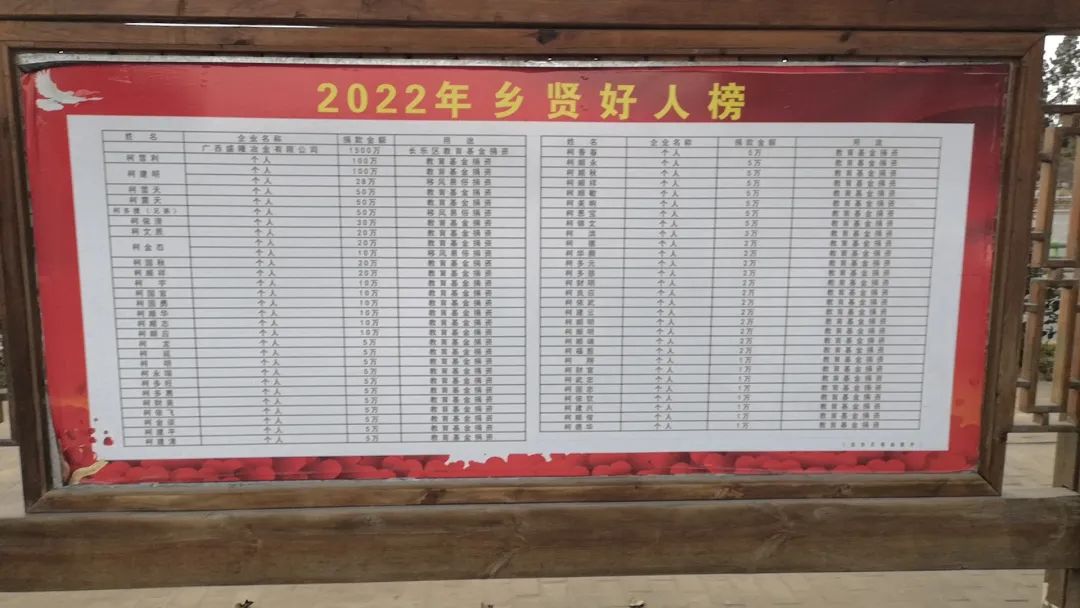 2022年乡贤好人榜
姓 名 企业名称 捐款金额 用 途
广西盛隆冶金有限公司 1500万 长乐区教育基金捐资
个人 100万 教育基金捐资
柯建明 个人 100万 教育基金捐资
个人 28万 移风易俗捐资
柯雪天 个人 50万 教育基金捐资
柯震天 个人 50万 教育基金捐资
个人 50万 移风易俗捐资
个人 30万 教育基金捐资
柯文 个人 20万 教育基金捐资
个人 20万 教育基金捐资
柯金 个人 10万 移风易俗捐资
柯国秋 个人 20万 教育基金捐资
柯顺祥 个人 20万 教育基金捐资
柯宇 个人 10万 教育基金捐资
柯国官 个人 10万 教育基金捐资
柯国勇 个人 10万 教育基金捐资
柯顺华 个人 10万 教育基金捐资
柯顺志 个人 10万 教育基金捐资
柯顺应 个人 10万 教育基金捐资
柯龙 个人 5万 教育基金捐资
柯 个人 5万 教育基金捐资
柯明 个人 5万 教育基金捐资
柯永 个人 5万 教育基金捐资
柯多旺 个人 5万 教育基金捐资
柯多惠 个人 5万 教育基金捐资
柯财 个人 5万 教育基金捐资
柯依飞 个人 5万 教育基金捐资
柯金 个人 5万 教育基金捐资
柯建平 个人 5万 教育基金捐资
柯建 个人 5万 教育基金捐资
姓 名 企业名称 捐款金额 用 途
柯香 个人 5万 教育基金捐资
柯顺永 个人 5万 教育基金捐资
柯顺秋 个人 5万 教育基金捐资
柯顺祥 个人 5万 教育基金捐资
柯顺敏 个人 5万 教育基金捐资
柯美 个人 5万 教育基金捐资
柯思宝 个人 5万 教育基金捐资
柯锦文 个人 5万 教育基金捐资
柯 个人 3万 教育基金捐资
柯 个人 2万 教育基金捐资
柯华 个人 2万 教育基金捐资
柯多元 个人 2万 教育基金捐资
柯多 个人 2万 教育基金捐资
柯财明 个人 2万 教育基金捐资
柯良 个人 2万 教育基金捐资
柯依武 个人 2万 教育基金捐资
柯建云 个人 2万 教育基金捐资
柯顺明 个人 2万 教育基金捐资
柯顺明 个人 2万 教育基金捐资
柯顺 个人 2万 教育基金捐资
柯福 个人 2万 教育基金捐资
柯 个人 1万 教育基金捐资
柯财 个人 1万 教育基金捐资
柯武忠 个人 1万 教育基金捐资
柯国志 个人 1万 教育基金捐资
柯依钦 个人 1万 教育基金捐资
柯建兴 个人 1万 教育基金捐资
柯顺 个人 1万 教育基金捐资
柯德华 个人 1万 教育基金捐资